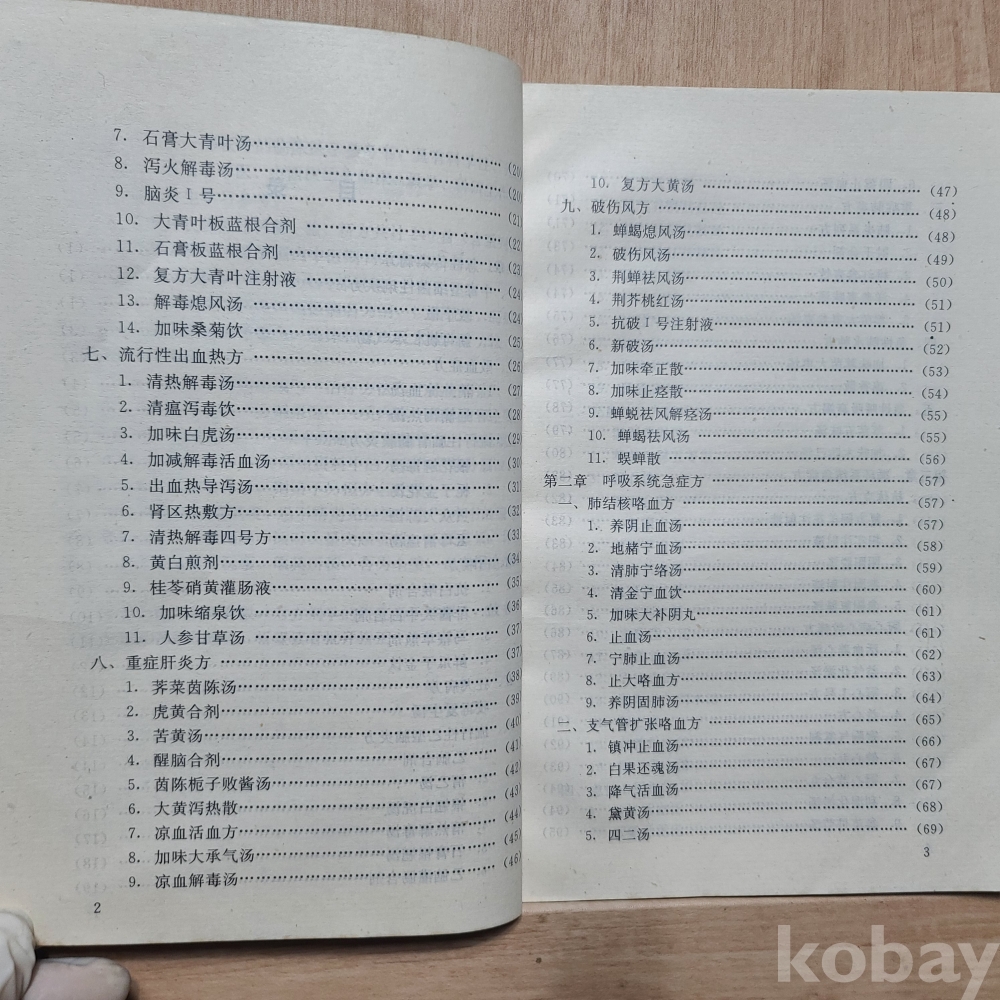 7. 石膏大青叶汤……(20)
8. 泻火解毒汤……(20)
9. 脑炎Ⅰ号……(21)
10. 大青叶板蓝根合剂……(22)
11. 石膏板蓝根合剂……(23)
12. 复方大青叶注射液……(24)
13. 解毒熄风汤……(24)
14. 加味桑菊饮……(25)
七、流行性出血热方……(26)
1. 清热解毒汤……(27)
2. 清瘟泻毒饮……(28)
3. 加味白虎汤……(29)
4. 加减解毒活血汤……(30)
5. 出血热导泻汤……(31)
6. 肾区热敷方……(32)
7. 清热解毒四号方……(33)
8. 黄白煎剂……(34)
9. 桂苓硝黄灌肠液……(35)
10. 加味缩泉饮……(36)
11. 人参甘草汤……(37)
八、重症肝炎方……(37)
1. 荠菜茵陈汤……(38)
2. 虎黄合剂……(39)
3. 苦黄汤……(40)
4. 醒脑合剂……(41)
5. 茵陈栀子败酱汤……(42)
6. 大黄泻热散……(43)
7. 凉血活血方……(44)
8. 加味大承气汤……(45)
9. 凉血解毒汤……(46)
2
10. 复方大黄汤……(47)
九、破伤风方……(48)
1. 蝉蝎熄风汤……(48)
2. 破伤风汤……(49)
3. 荆蝉祛风汤……(50)
4. 荆芥桃红汤……(51)
5. 抗破Ⅰ号注射液……(51)
6. 新破汤……(52)
7. 加味牵正散……(53)
8. 加味止痉散……(54)
9. 蝉蜕祛风解痉汤……(55)
10. 蝉蝎祛风汤……(55)
11. 蜈蝉散……(56)
第二章 呼吸系统急症方……(57)
一、肺结核咯血方……(57)
1. 养阴止血汤……(57)
2. 地赭宁血汤……(58)
3. 清肺宁络汤……(59)
4. 清金宁血饮……(60)
5. 加味大补阴丸……(61)
6. 止血汤……(61)
7. 宁肺止血汤……(62)
8. 止大咯血方……(63)
9. 养阴固肺汤……(64)
二、支气管扩张咯血方……(65)
1. 镇冲止血汤……(66)
2. 白果还魂汤……(67)
3. 降气活血汤……(67)
4. 黛黄汤……(68)
5. 四二汤……(69)
3
kobay